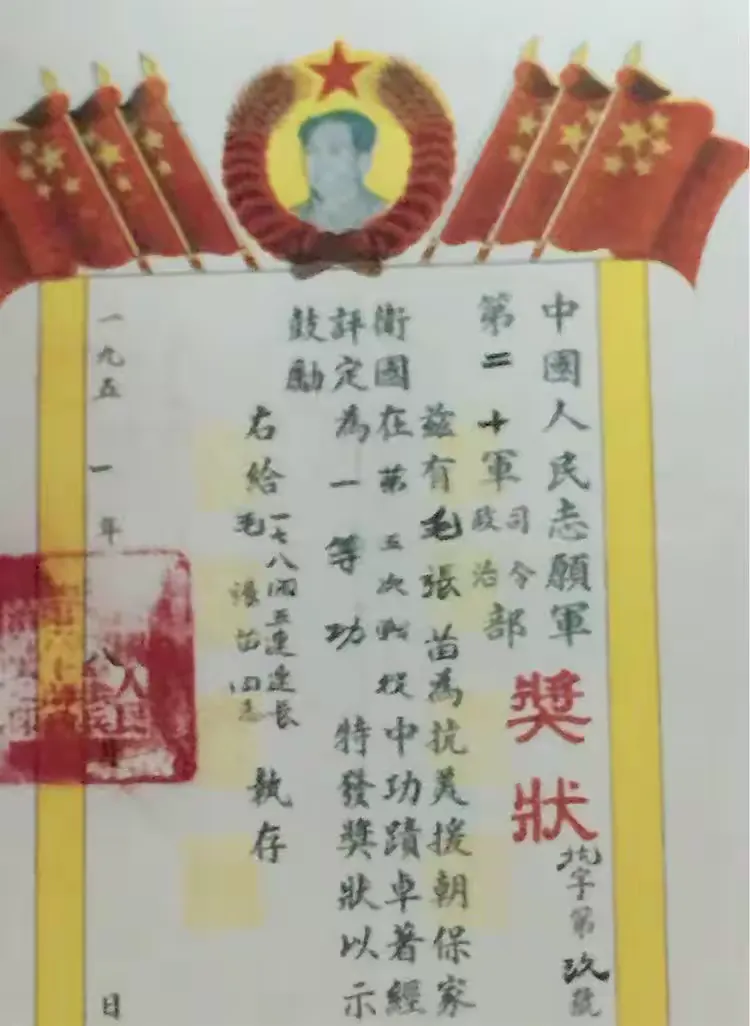 中國人民志願軍
第二十軍司令政治部
獎狀
字第玖號
茲有毛張苗為抗美援朝保家
衛國在第五次战役中功蹟卓著經
評定為一等功 特發獎狀以示
鼓勵
右給一七八团五連連長
毛張苗同志 執存
一九五一年八月 日